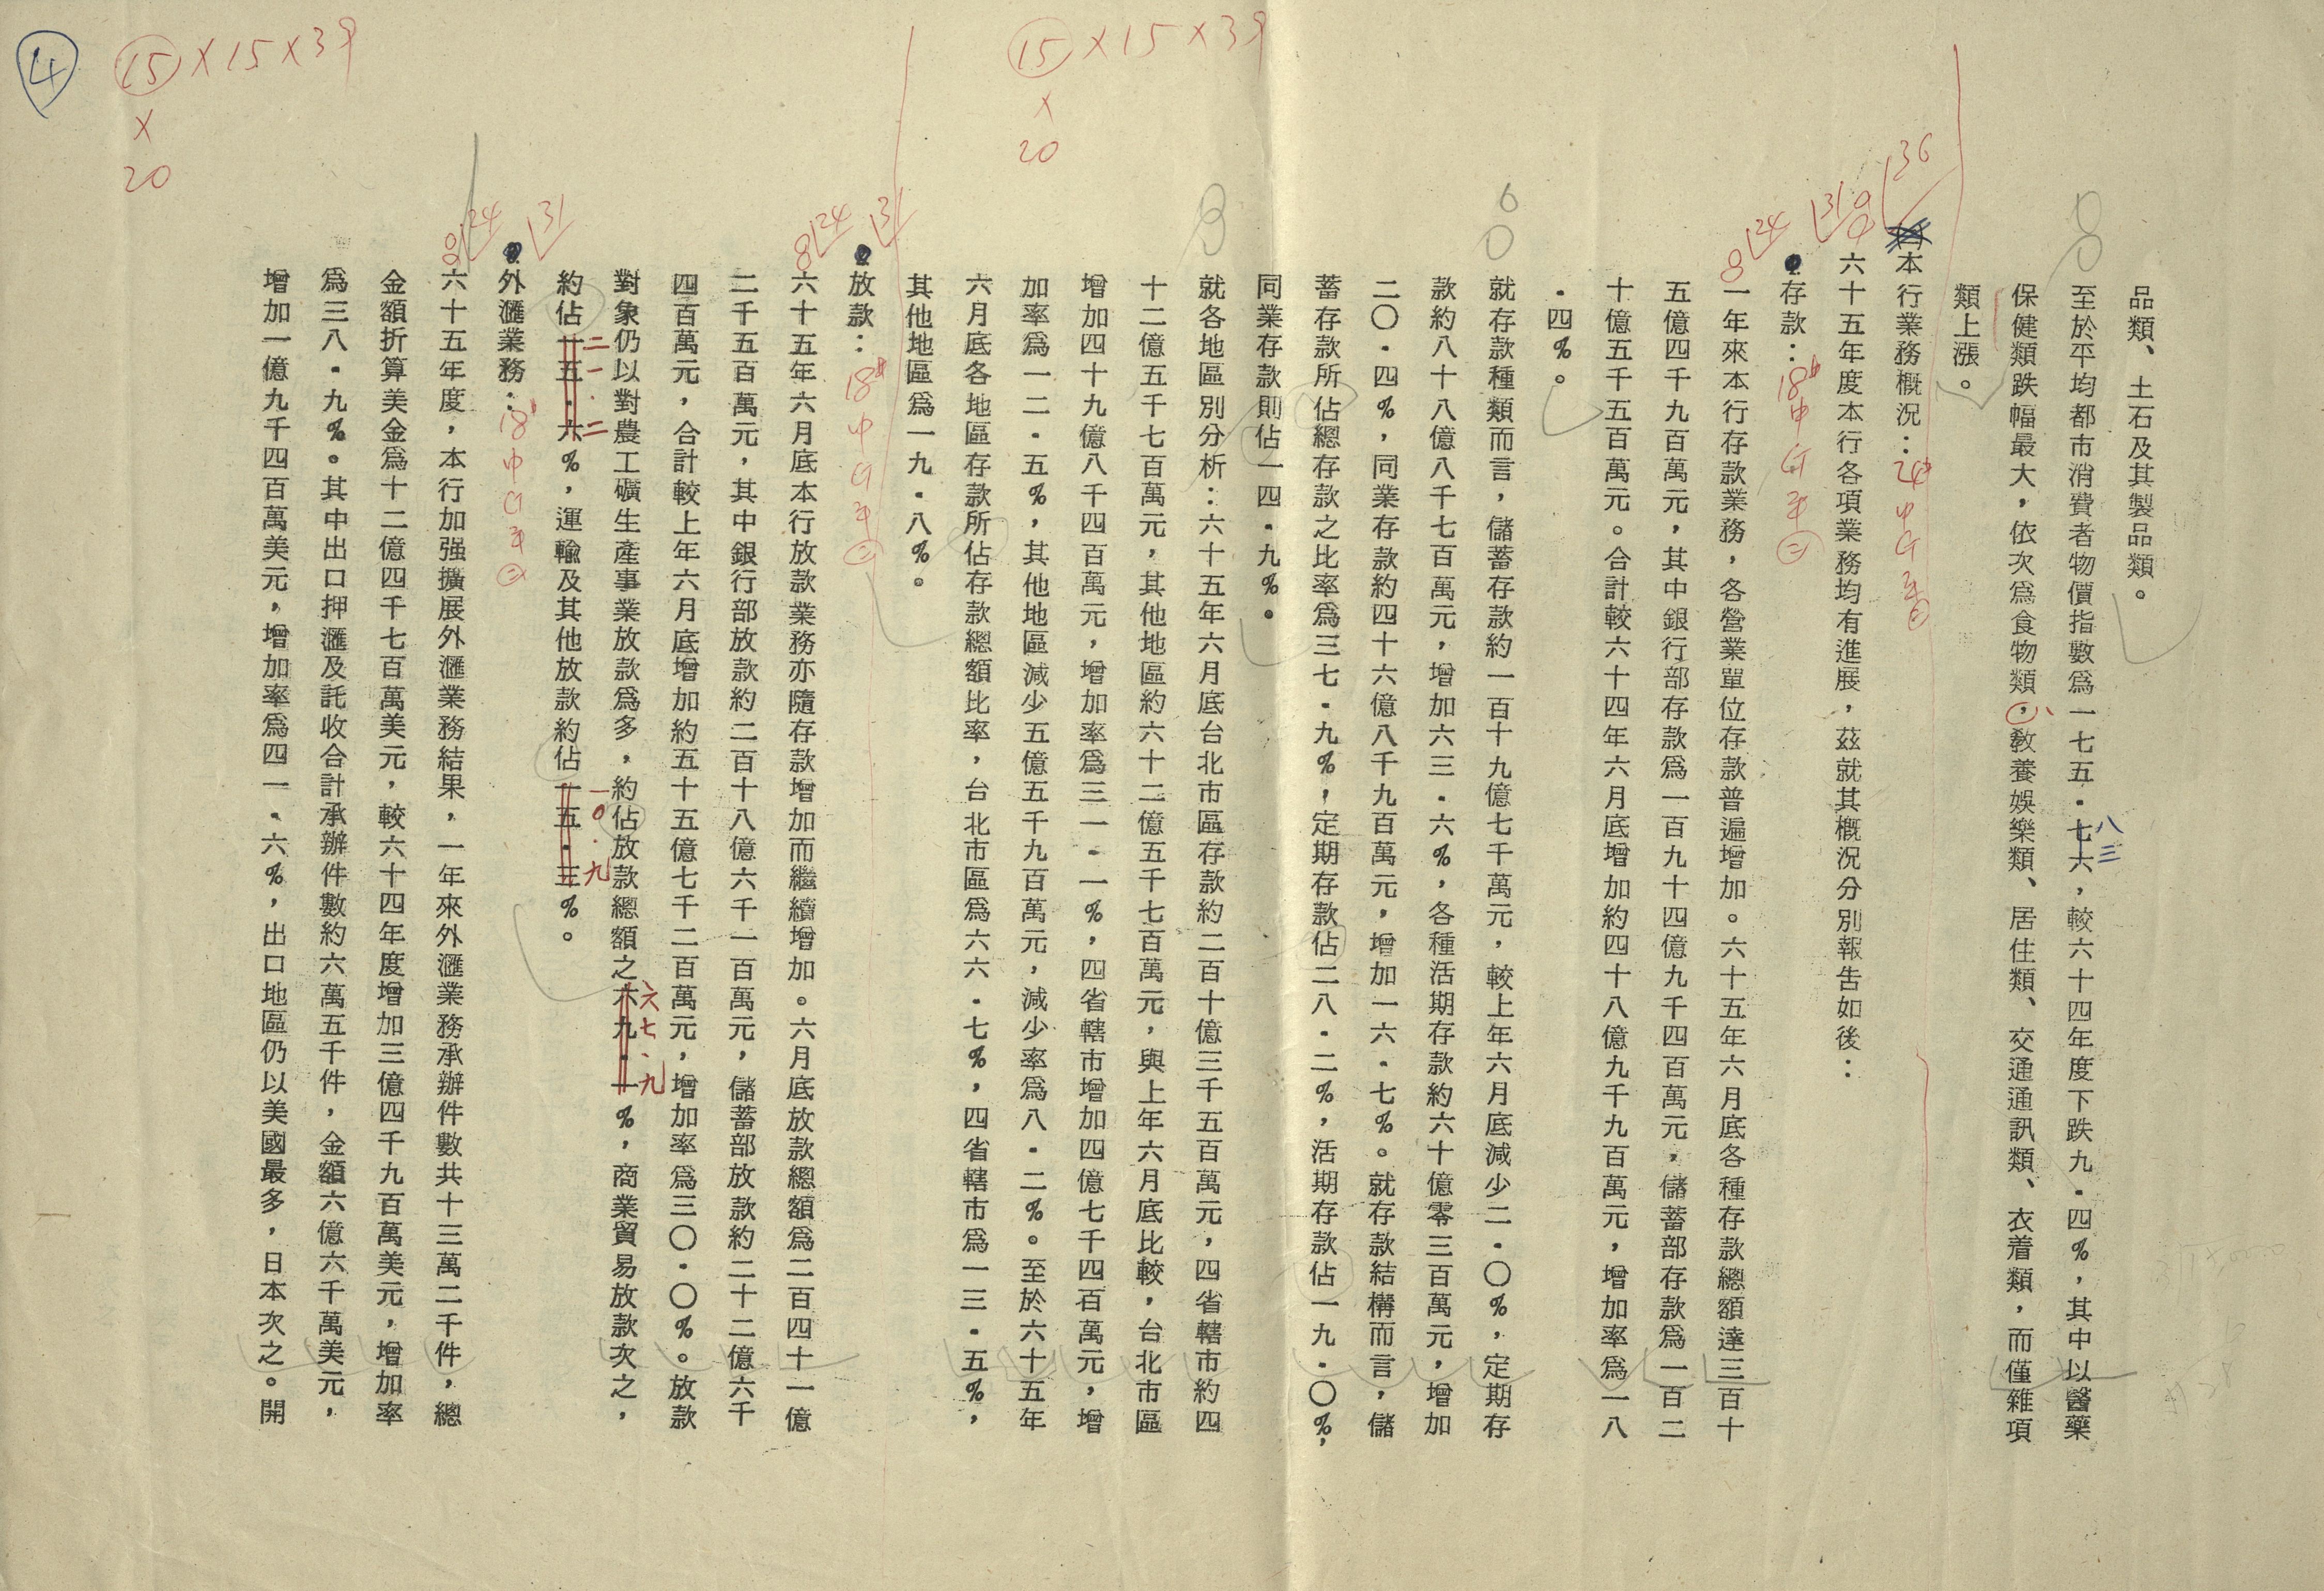 品類、土石及其製品類。
至於平均都市消費者物價指數為一七五．七六，較六十四年度下跌九．四％，其中以醫藥
八三
保健類跌幅最大，依次為食物類，教養娛樂類、居住類、交通通訊類、衣着類，而僅雜項
類上漲。
本行業務概況：
六十五年度本行各項業務均有進展，茲就其概況分別報告如後：
存款：
一年來本行存款業務，各營業單位存款普遍增加。六十五年六月底各種存款總額達三百十
五億四千九百萬元，其中銀行部存款為一百九十四億九千四百萬元，儲蓄部存款為一百二
十億五千五百萬元。合計較六十四年六月底增加約四十八億九千九百萬元，增加率為一八
．四％。
就存款種類而言，儲蓄存款約一百十九億七千萬元，較上年六月底減少二．〇％，定期存
款約八十八億八千七百萬元，增加六三．六％，各種活期存款約六十億零三百萬元，增加
二〇．四％，同業存款約四十六億八千九百萬元，增加一六．七％。就存款結構而言，儲
蓄存款所佔總存款之比率為三七．九％，定期存款佔二八．二％，活期存款佔一九．〇％，
同業存款則佔一四．九％。
就各地區別分析：六十五年六月底台北市區存款約二百十億三千五百萬元，四省轄市約四
十二億五千七百萬元，其他地區約六十二億五千七百萬元，與上年六月底比較，台北市區
增加四十九億八千四百萬元，增加率為三一．一％，四省轄市增加四億七千四百萬元，增
加率為一二．五％，其他地區減少五億五千九百萬元，減少率為八．二％。至於六十五年
六月底各地區存款所佔存款總額比率，台北市區為六六．七％，四省轄市為一三．五％，
其他地區為一九．八％。
放款：
六十五年六月底本行放款業務亦隨存款增加而繼續增加。六月底放款總額為二百四十一億
二千五百萬元，其中銀行部放款約二百十八億六千一百萬元，儲蓄部放款約二十二億六千
四百萬元，合計較上年六月底增加約五十五億七千二百萬元，增加率為三〇．〇％。放款
對象仍以對農工礦生產事業放款為多，約佔放款總額之六九．一％，商業貿易放款次之，
六七．九
約佔一五．六％，運輸及其他放款約佔一五．三％。
二一．二
一〇．九
外滙業務：
六十五年度，本行加强擴展外滙業務結果，一年來外滙業務承辦件數共十三萬二千件，總
金額折算美金為十二億四千七百萬美元，較六十四年度增加三億四千九百萬美元，增加率
為三八．九％。其中出口押滙及託收合計承辦件數約六萬五千件，金額六億六千萬美元，
增加一億九千四百萬美元，增加率為四一．六％，出口地區仍以美國最多，日本次之。開
15 × 15 × 39
×
20
15 × 15 × 39
×
20
4
36
31
24
31
24
31
24